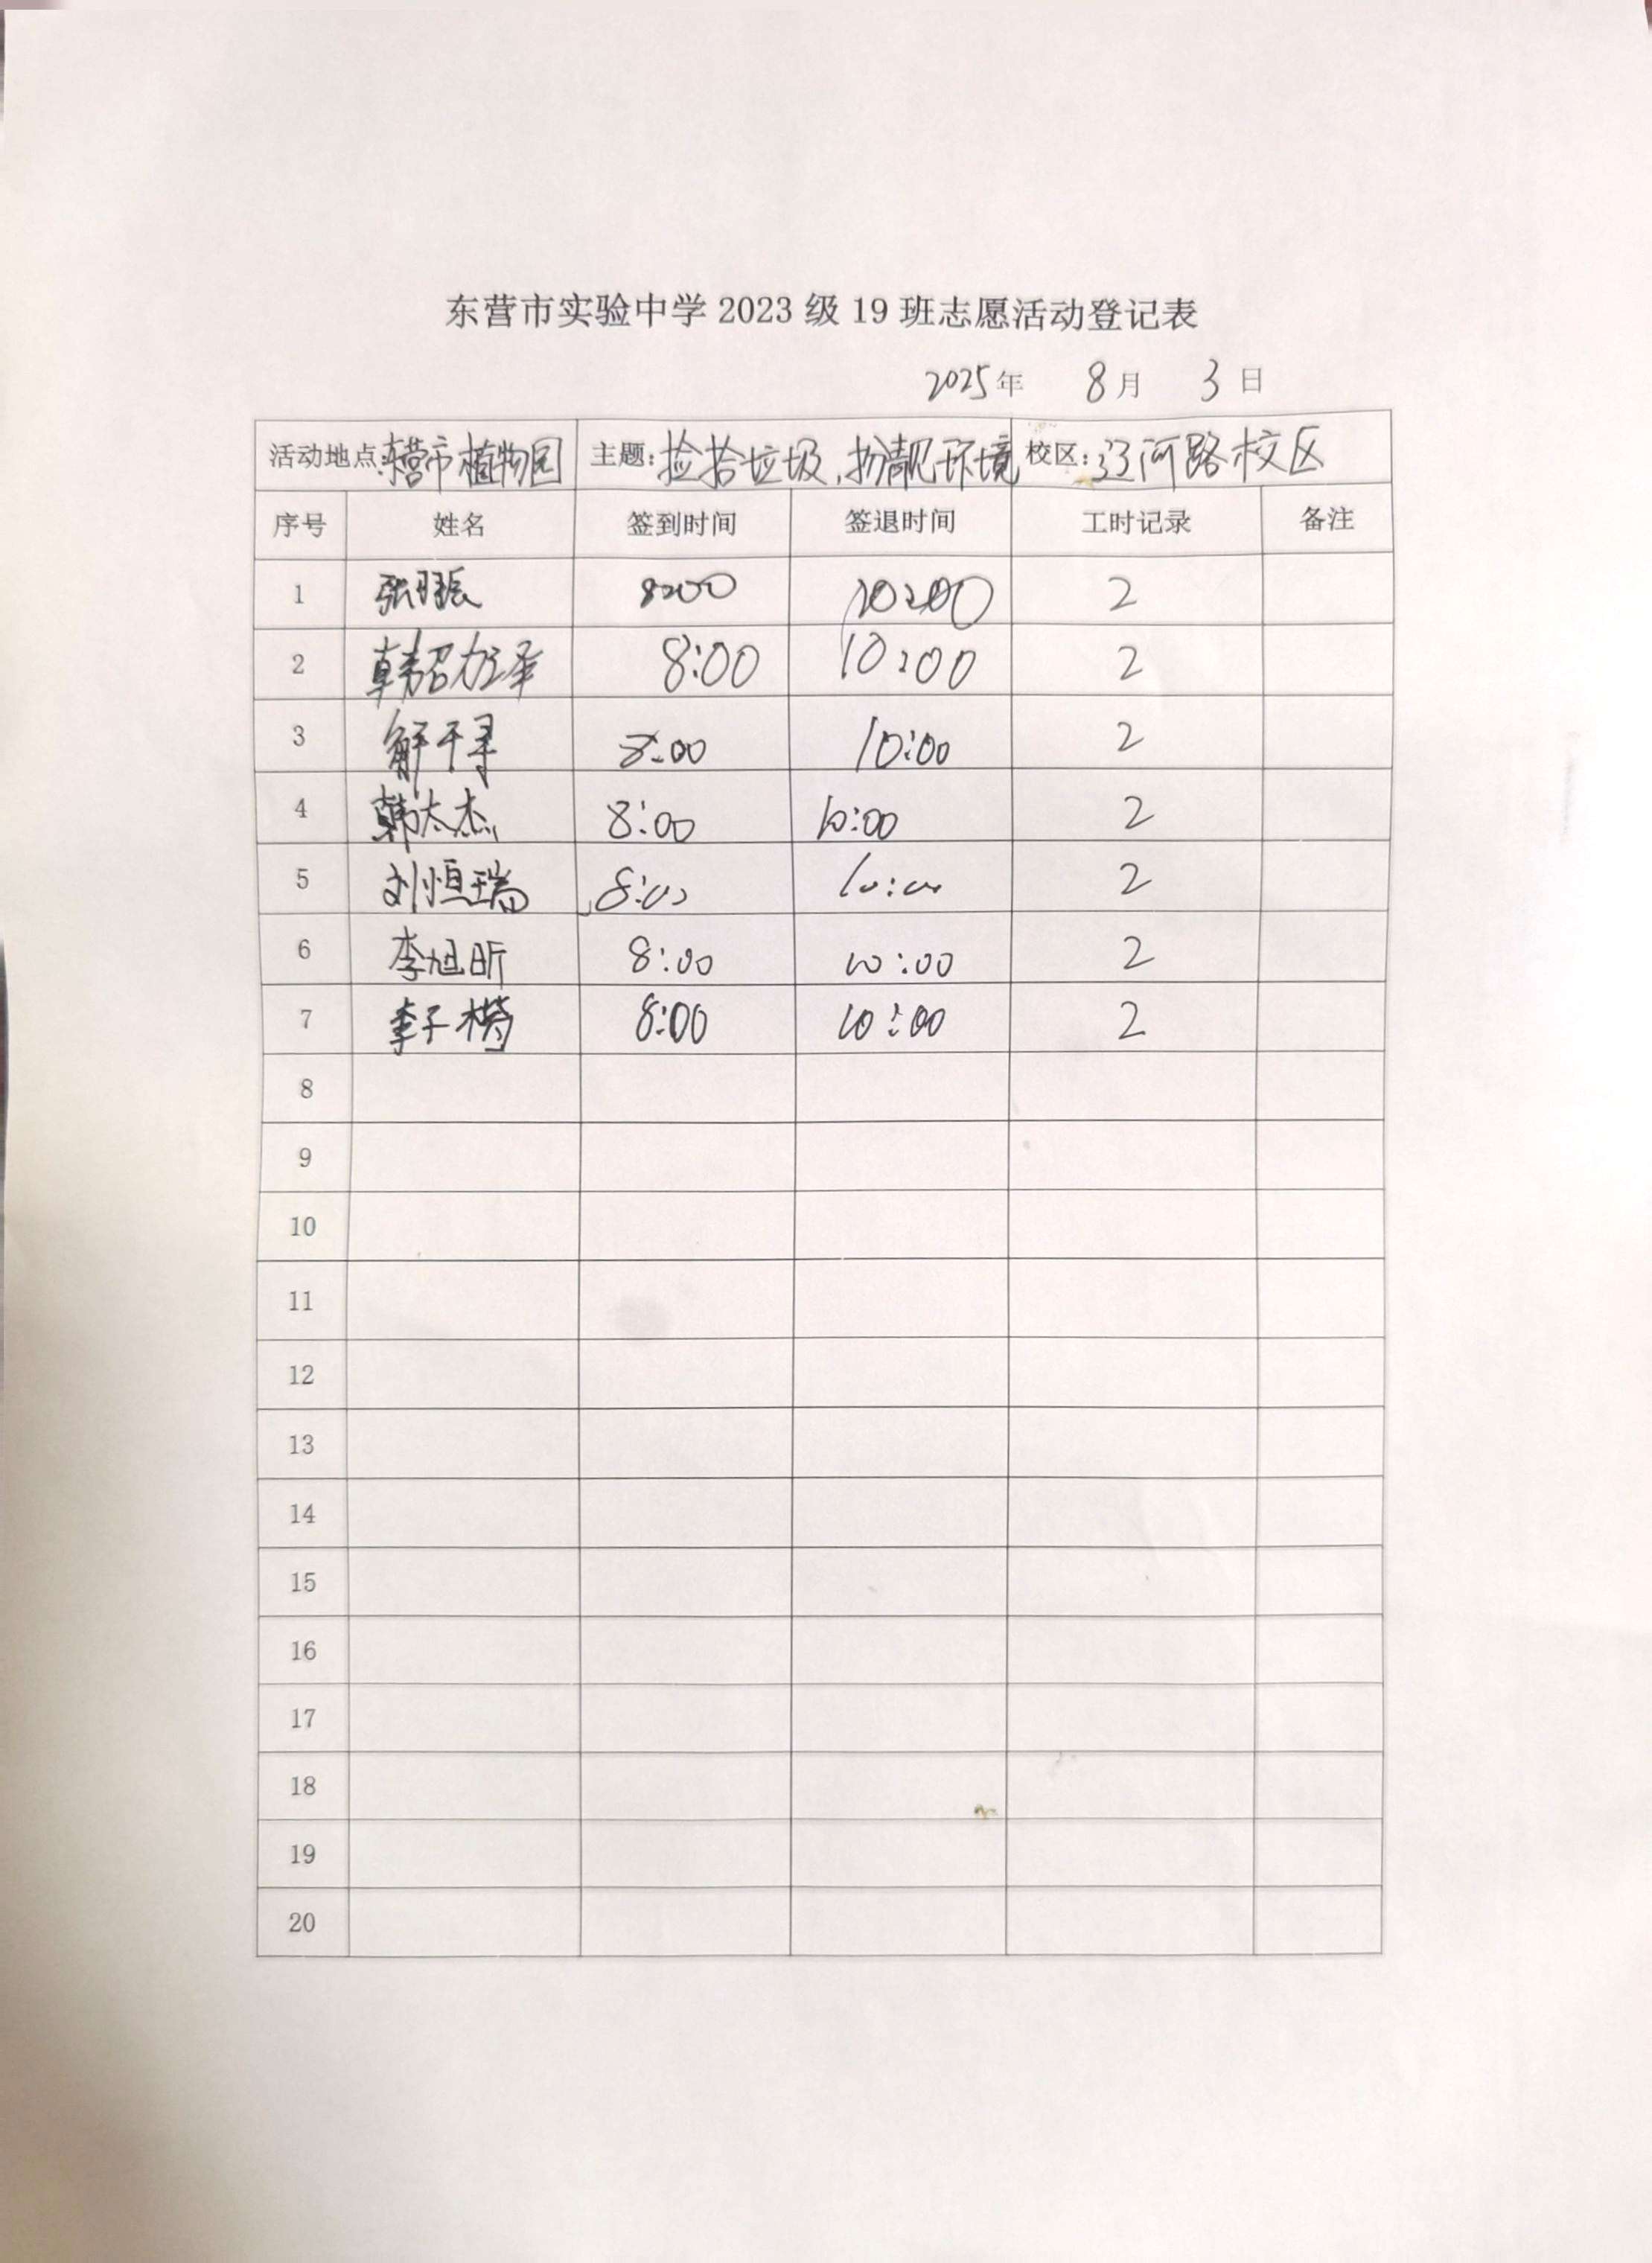 东营市实验中学 2023 级 19 班志愿活动登记表
2025年 8月 3日
活动地点:东营市植物园 主题:捡拾垃圾,扮靓环境 校区:辽河路校区
序号 姓名 签到时间 签退时间 工时记录 备注
1 8:00 10:00 2
2 8:00 10:00 2
3 解千寻 8:00 10:00 2
4 韩太杰 8:00 10:00 2
5 刘恒瑞 8:00 10:00 2
6 李旭昕 8:00 10:00 2
7 李子 8:00 10:00 2
8
9
10
11
12
13
14
15
16
17
18
19
20